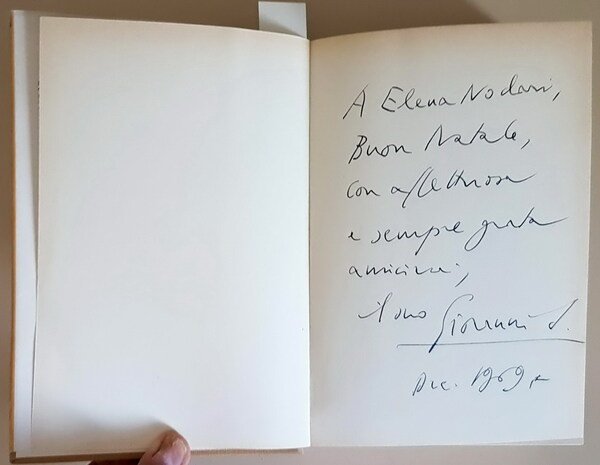 A Elena Nodari,
Buon Natale,
con affettuosa
e sempre grata
amicizia,
il suo Giovanni S.
Dic. 1969